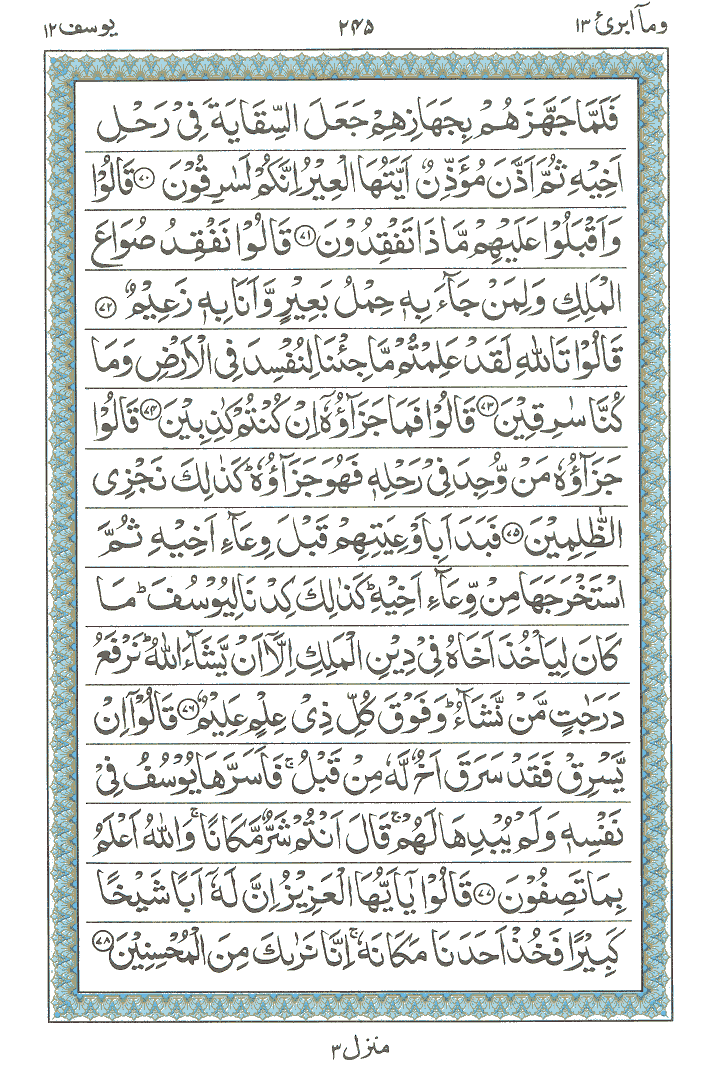 وما ابرئ ١٣
٢٤٥
يوسف ١٢
فَلَمَّا جَهَّزَ هُمْ بِجَهَازِهِمْ جَعَلَ السِّقَايَةَ فِیْ رَحْلِ
اَخِيْهِ ثُمَّ اَذَّنَ مُؤَذِّنٌ اَيَّتُهَا الْعِيْرُ اِنَّكُمْ لَسٰرِقُوْنَ ﴿٧٠﴾ قَالُوْا
وَاَقْبَلُوْا عَلَيْهِمْ مَّا ذَا تَفْقِدُوْنَ ﴿٧١﴾ قَالُوْا نَفْقِدُ صُوَاعَ
الْمَلِكِ وَلِمَنْ جَآءَ بِهٖ حِمْلُ بَعِيْرٍ وَّاَنَا بِهٖ زَعِيْمٌ ﴿٧٢﴾
قَالُوْا تَاللّٰهِ لَقَدْ عَلِمْتُمْ مَّا جِئْنَا لِنُفْسِدَ فِی الْاَرْضِ وَمَا
كُنَّا سٰرِقِيْنَ ﴿٧٣﴾ قَالُوْا فَمَا جَزَآؤُهٗۤ اِنْ كُنْتُمْ كٰذِبِيْنَ ﴿٧٤﴾ قَالُوْا
جَزَآؤُهٗ مَنْ وُّجِدَ فِیْ رَحْلِهٖ فَهُوَ جَزَآؤُهٗ ؕ كَذٰلِكَ نَجْزِی
الظّٰلِمِيْنَ ﴿٧٥﴾ فَبَدَاَ بِاَوْعِيَتِهِمْ قَبْلَ وِعَآءِ اَخِيْهِ ثُمَّ
اسْتَخْرَجَهَا مِنْ وِّعَآءِ اَخِيْهِ ؕ كَذٰلِكَ كِدْنَا لِيُوْسُفَ ؕ مَا
كَانَ لِيَاْخُذَ اَخَاهُ فِیْ دِيْنِ الْمَلِكِ اِلَّاۤ اَنْ يَّشَآءَ اللّٰهُ ؕ نَرْفَعُ
دَرَجٰتٍ مَّنْ نَّشَآءُ ؕ وَفَوْقَ كُلِّ ذِیْ عِلْمٍ عَلِيْمٌ ﴿٧٦﴾ قَالُوْۤا اِنْ
يَّسْرِقْ فَقَدْ سَرَقَ اَخٌ لَّهٗ مِنْ قَبْلُ ۚ فَاَسَرَّهَا يُوْسُفُ فِیْ
نَفْسِهٖ وَلَمْ يُبْدِهَا لَهُمْ ۚ قَالَ اَنْتُمْ شَرٌّ مَّكَانًا ۚ وَاللّٰهُ اَعْلَمُ
بِمَا تَصِفُوْنَ ﴿٧٧﴾ قَالُوْا يٰۤاَيُّهَا الْعَزِيْزُ اِنَّ لَهٗۤ اَبًا شَيْخًا
كَبِيْرًا فَخُذْ اَحَدَنَا مَكَانَهٗ ۚ اِنَّا نَرٰىكَ مِنَ الْمُحْسِنِيْنَ ﴿٧٨﴾
منزل ٣